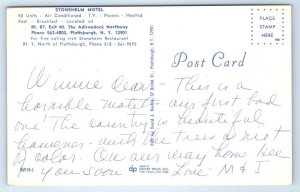 STONEHELM MOTEL
40 Units - Air Conditioned - T.V. - Phones - Heated
Pool - Breakfast - Located on
Rt. 87, Exit 40, The Adirondack Northway
Phone 563-4800, Plattsburgh, N. Y. 12901
For fine eating visit Stonehelm Restaurant
Rt. 9, North of Plattsburgh, Phone 518 -
PLACE
STAMP
HERE
Post Card
Winnie dear - This is a
horrible motel - any first bad
one! The country is beautiful
however - with the trees a riot
of color. On our way home. See
you soon Love M & J
dp